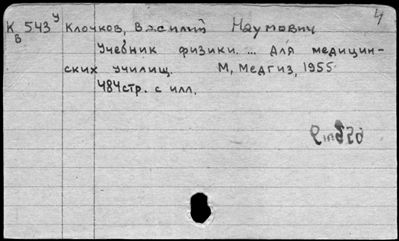 К 543 у Клочков, Василий Наумович 4
В
Учебник физики. ... Для медицин-
ских училищ. М, Медгиз, 1955
484 стр. с илл.